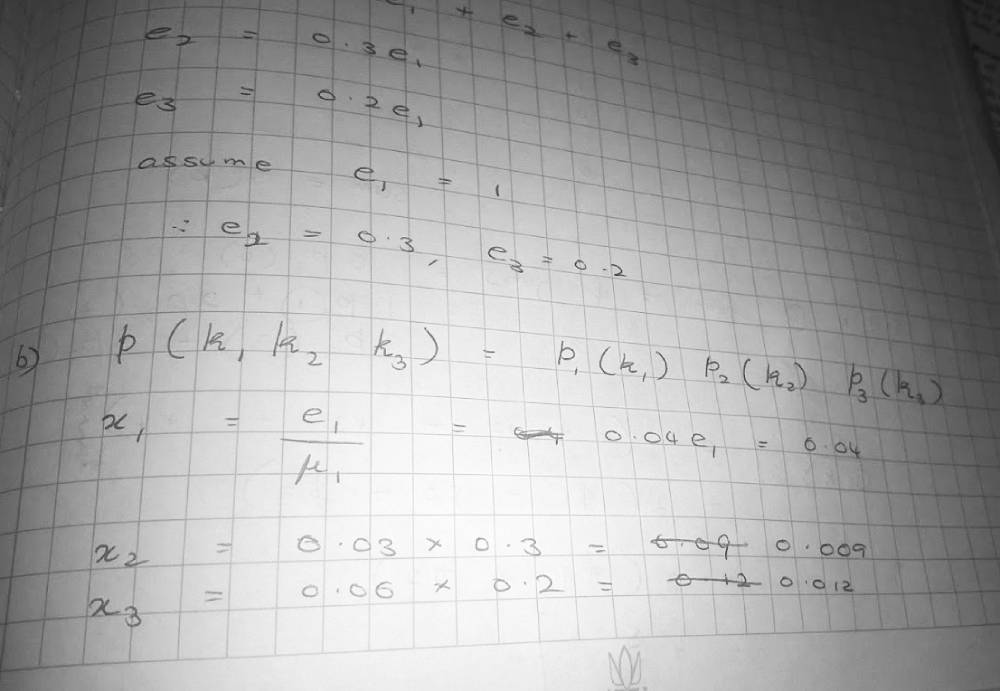 e₁ + e₂ + e₃
e₂ = 0.3e₁
e₃ = 0.2e₁
assume e₁ = 1
∴ e₂ = 0.3, e₃ = 0.2
b) p(k₁ k₂ k₃) = p₁(k₁) p₂(k₂) p₃(k₃)
x₁ = e₁/μ₁ = 0.04e₁ = 0.04
x₂ = 0.03 × 0.3 = 0.09 0.009
x₃ = 0.06 × 0.2 = 0.12 0.012